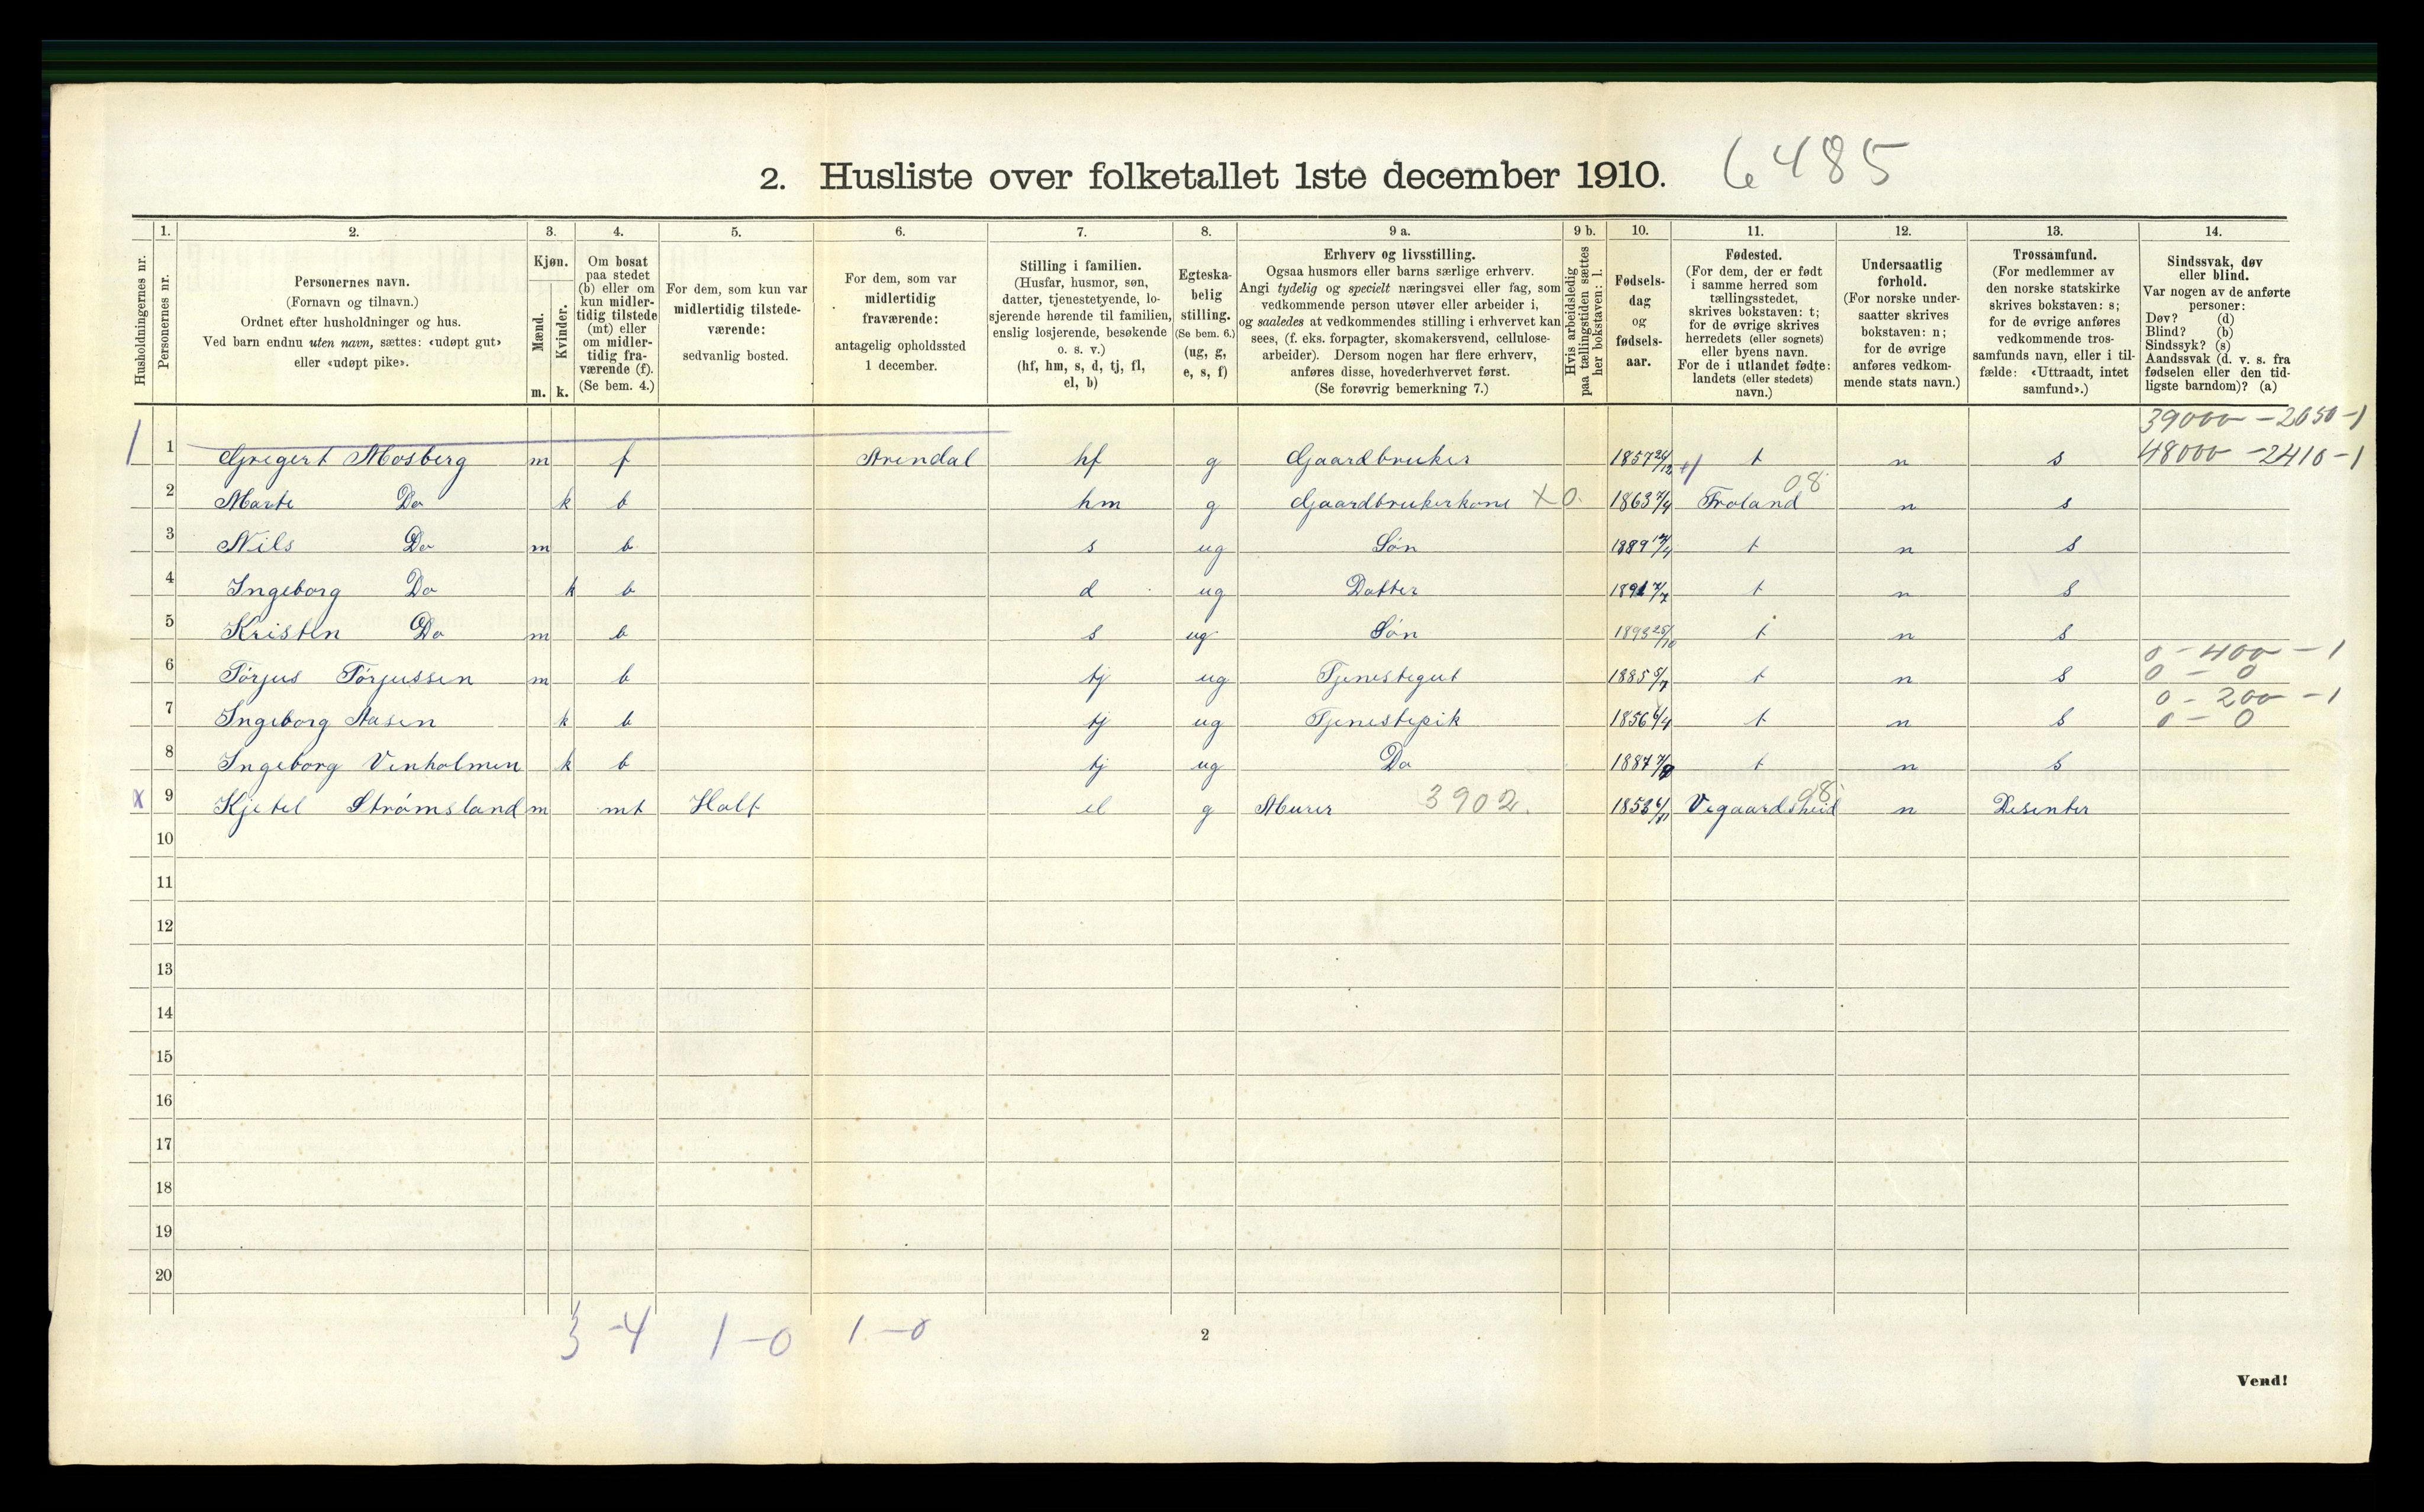 2. Husliste over folketallet 1ste december 1910. 6485
Husholdningernes nr.
1. Personernes nr.
2. Personernes navn.
(Fornavn og tilnavn.)
Ordnet efter husholdninger og hus.
Ved barn endnu uten navn, sættes: «udøpt gut»
eller «udøpt pike».
3. Kjøn.
Mænd. m.
Kvinder. k.
4. Om bosat
paa stedet
(b) eller om
kun midler-
tidig tilstede
(mt) eller
om midler-
tidig fra-
værende (f).
(Se bem. 4.)
5. For dem, som kun var
midlertidig tilstede-
værende:
sedvanlig bosted.
6. For dem, som var
midlertidig
fraværende:
antagelig opholdssted
1 december.
7. Stilling i familien.
(Husfar, husmor, søn,
datter, tjenestetyende, lo-
sjerende hørende til familien,
enslig losjerende, besøkende
o. s. v.)
(hf, hm, s, d, tj, fl,
el, b)
8. Egteska-
belig
stilling.
(Se bem. 6.)
(ug, g,
e, s, f)
9 a. Erhverv og livsstilling.
Ogsaa husmors eller barns særlige erhverv.
Angi tydelig og specielt næringsvei eller fag, som
vedkommende person utøver eller arbeider i,
og saaledes at vedkommendes stilling i erhvervet kan
sees, (f. eks. forpagter, skomakersvend, cellulose-
arbeider). Dersom nogen har flere erhverv,
anføres disse, hovederhvervet først.
(Se forøvrig bemerkning 7.)
9 b. Hvis arbeidsledig
paa tællingstiden sættes
her bokstaven: l.
10. Fødsels-
dag
og
fødsels-
aar.
11. Fødested.
(For dem, der er født
i samme herred som
tællingsstedet,
skrives bokstaven: t;
for de øvrige skrives
herredets (eller sognets)
eller byens navn.
For de i utlandet fødte:
landets (eller stedets)
navn.)
12. Undersaatlig
forhold.
(For norske under-
saatter skrives
bokstaven: n;
for de øvrige
anføres vedkom-
mende stats navn.)
13. Trossamfund.
(For medlemmer av
den norske statskirke
skrives bokstaven: s;
for de øvrige anføres
vedkommende tros-
samfunds navn, eller i til-
fælde: «Uttraadt, intet
samfund».)
14. Sindssvak, døv
eller blind.
Var nogen av de anførte
personer:
Døv? (d)
Blind? (b)
Sindssyk? (s)
Aandssvak (d. v. s. fra
fødselen eller den tid-
ligste barndom)? (a)
39000 - 2050 - 1
1 1 Gregert Mosberg m f Arendal hf g Gaardbruker 1857 26/12 t n s 48000 - 2410 - 1
2 Marte Do k b hm g Gaardbrukerkone X 0. 1863 7/4 Froland 08 n s
3 Nils Do m b s ug Søn 1889 17/4 t n s
4 Ingeborg Do k b d ug Datter 1891 7/7 t n s
5 Kristen Do m b s ug Søn 1893 25/10 t n s
0 - 400 - 1
6 Tørjus Tørjussen m b tj ug Tjenestegut 1885 5/7 t n s 0 - 0
0 - 200 - 1
7 Ingeborg Aasen k b tj ug Tjenestepik 1856 6/4 t n s 0 - 0
8 Ingeborg Vinholmen k b tj ug Do 1887 t n s
X 9 Kjetel Strømsland m mt Holt el g Murer 3902. 1853 6/11 Vegaardsheid 08 n Desenter
10
11
12
13
14
15
16
17
18
19
20
3-4 1-0 1-0
2
Vend!